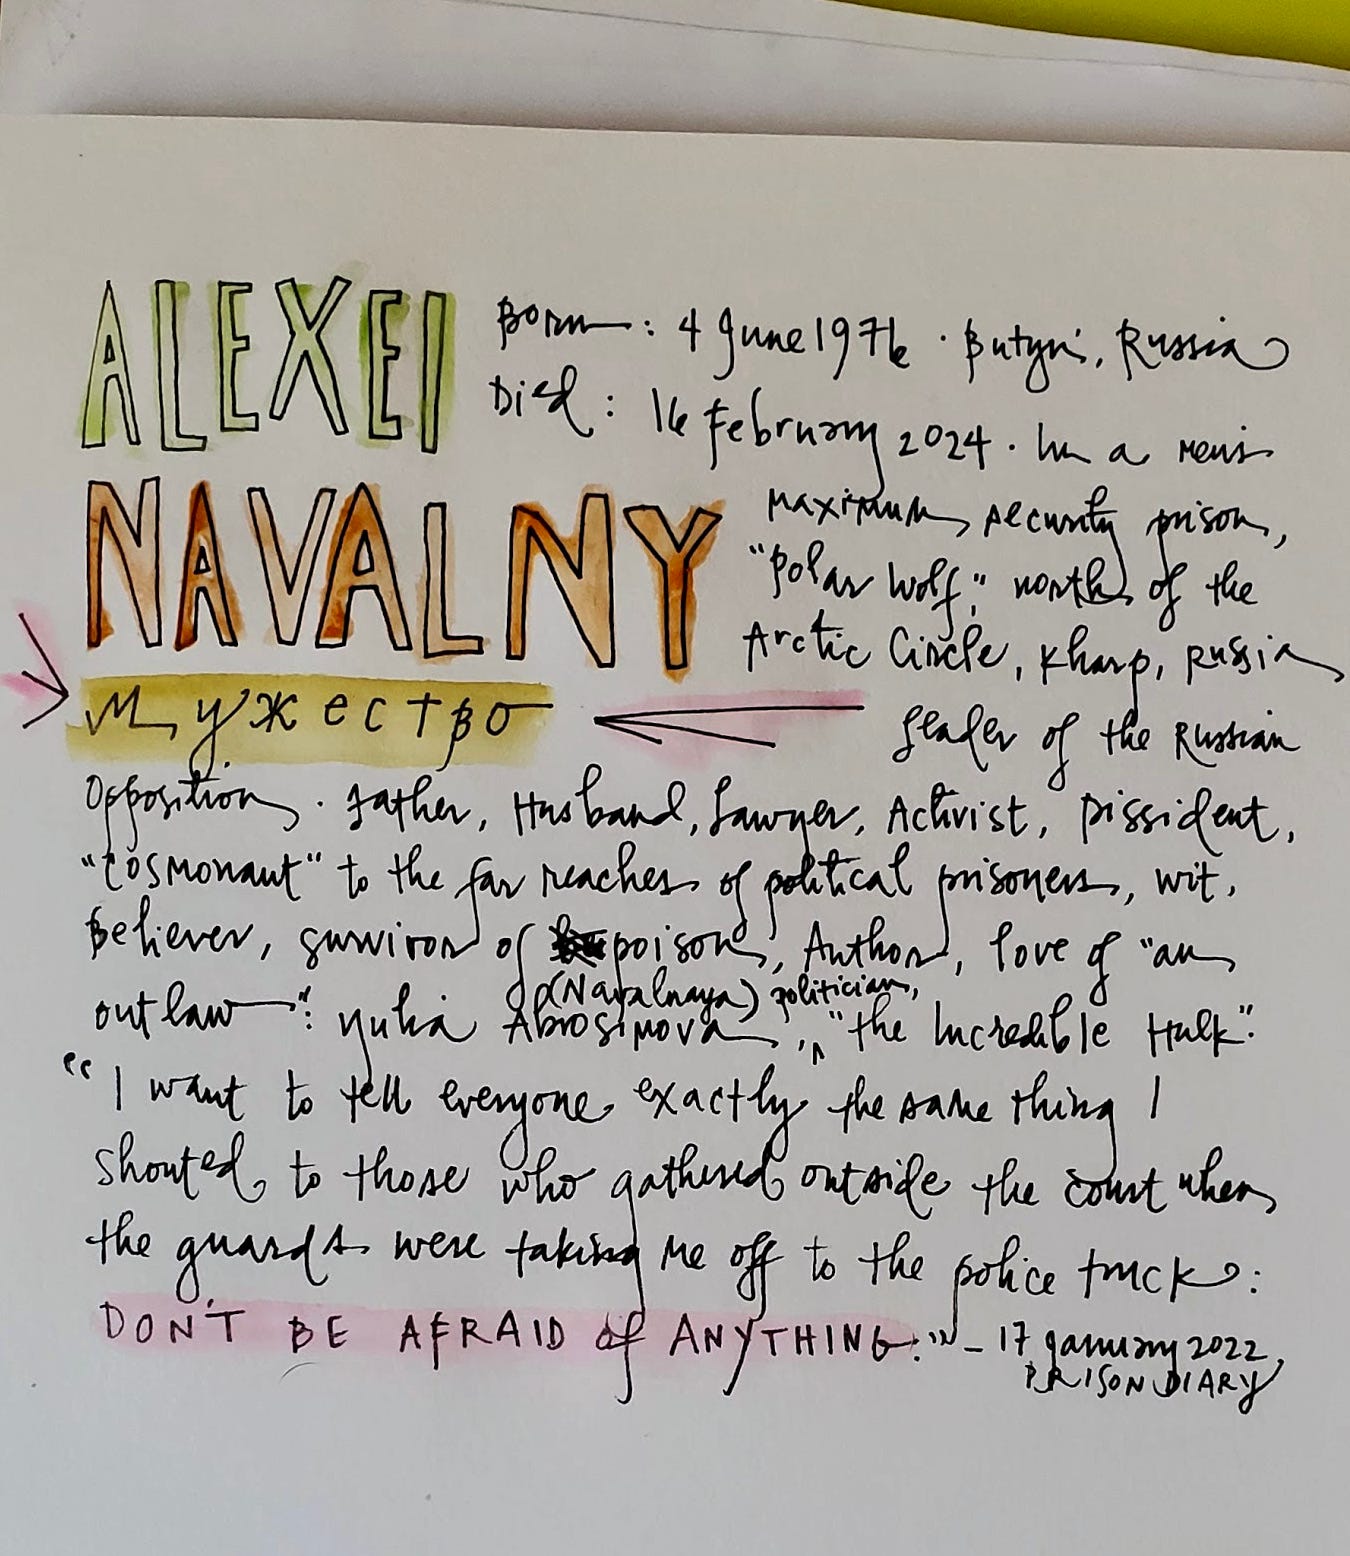 ALEXEI
Born: 4 June 1976 · Butyn', Russia
Died: 16 February 2024 · In a men's
NAVALNY
maximum security prison,
"Polar Wolf," north of the
Arctic Circle, Kharp, Russia
мужество
Leader of the Russian
Opposition · Father, Husband, Lawyer, Activist, Dissident,
"Cosmonaut" to the far reaches of political prisoners, wit,
Believer, survivor of poison, Author, love of "an
(Navalnaya) politician,
outlaw": Yulia Abrosimova, "the Incredible Hulk".
"I want to tell everyone exactly the same thing I
shouted to those who gathered outside the court when
the guards were taking me off to the police truck:
DON'T BE AFRAID of ANYTHING." – 17 January 2022,
PRISON DIARY